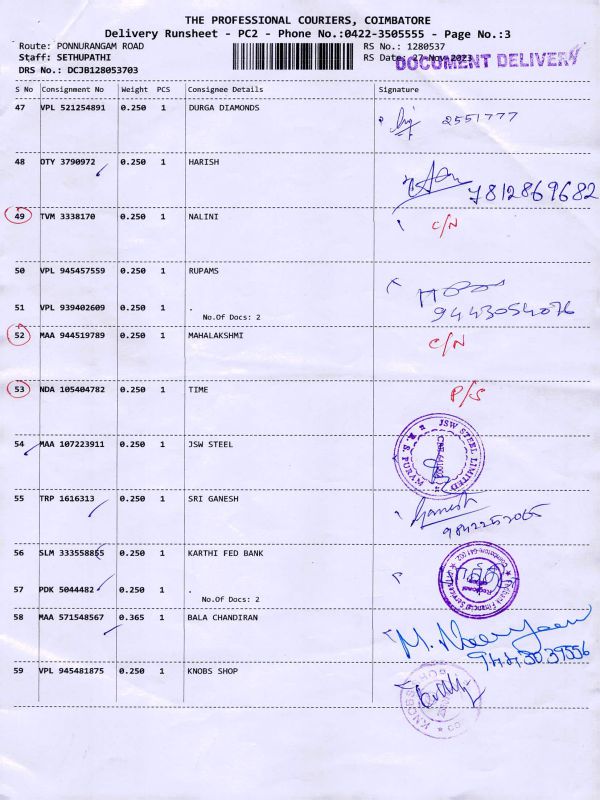 THE PROFESSIONAL COURIERS, COIMBATORE
Delivery Runsheet - PC2 - Phone No.:0422-3505555 - Page No.:3
Route: PONNURANGAM ROAD RS No.: 1280537
Staff: SETHUPATHI RS Date: 27-Nov-2023 DOCUMENT DELIVERY
DRS No.: DCJB128053703
S No Consignment No Weight PCS Consignee Details Signature
47 VPL 521254891 0.250 1 DURGA DIAMONDS 2551777
48 OTY 3790972 0.250 1 HARISH 7812869682
49 TVM 3338170 0.250 1 NALINI C/N
50 VPL 945457559 0.250 1 RUPAMS
51 VPL 939402609 0.250 1 . 9443054076
No.Of Docs: 2
52 MAA 944519789 0.250 1 MAHALAKSHMI C/N
53 NDA 105404782 0.250 1 TIME P/S
54 MAA 107223911 0.250 1 JSW STEEL JSW STEEL LIMITED R.S. PURAM
55 TRP 1616313 0.250 1 SRI GANESH Ganesh
56 SLM 333558855 0.250 1 KARTHI FED BANK
57 PDK 5044482 0.250 1 .
No.Of Docs: 2
58 MAA 571548567 0.365 1 BALA CHANDIRAN
9443039556
59 VPL 945481875 0.250 1 KNOBS SHOP KNOBS SHOP